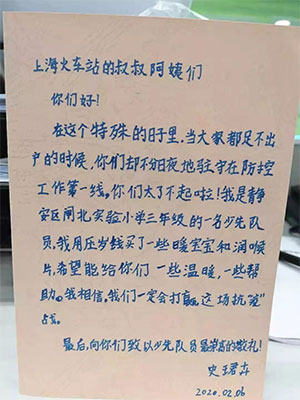 上海火车站的叔叔阿姨们
你们好!
在这个特殊的日子里,当大家都足不出
户的时候,你们却不分日夜地驻守在防控
工作第一线,你们太了不起啦!我是静
安区闸北实验小学三年级的一名少先队
员,我用压岁钱买了一些暖宝宝和润喉
片,希望能给你们一些温暖,一些帮
助。我相信,我们一定会打赢这场抗"疫"
占戈。
最后,向你们致以少先队员最崇高的敬礼!
史珺卉
2020.02.06